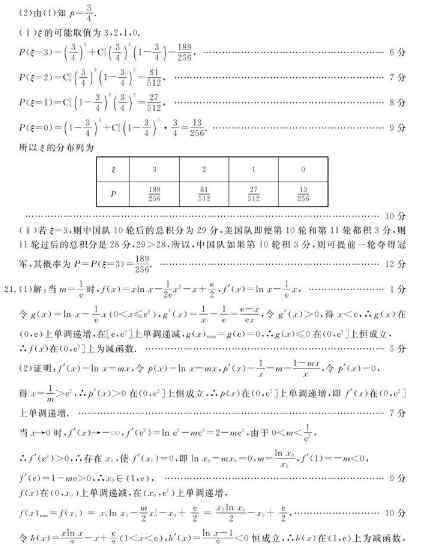 (2)由(1)知 p=3/4.
(ⅰ)ξ的可能取值为 3,2,1,0.
P(ξ=3)=(3/4)³+C (3/4)³(1-3/4)=189/256. 6 分
P(ξ=2)=C (3/4)³(1-3/4)²=81/512. 7 分
P(ξ=1)=C (1-3/4)³(3/4)²=27/512. 8 分
P(ξ=0)=(1-3/4)³+C (1-3/4)³·3/4=13/256. 9 分
所以ξ的分布列为
ξ 3 2 1 0
P 189/256 81/512 27/512 13/256
10 分
(ⅱ)若ξ=3,则中国队 10 轮后的总积分为 29 分,美国队即便第 10 轮和第 11 轮都积 3 分,则
11 轮过后的总积分是 28 分,29>28,所以,中国队如果第 10 轮积 3 分,则可提前一轮夺得冠
军,其概率为 P=P(ξ=3)=189/256. 12 分
21.(1)解:当 m=1/e 时,f(x)=xln x-1/2e x²-x+e/2,f′(x)=ln x-1/e x, 1 分
令 g(x)=ln x-1/e x(0<x≤e²),g′(x)=1/x-1/e=(e-x)/ex,令 g′(x)>0,得 x<e,∴g(x)在
(0,e)上单调递增,在[e,e²]上单调递减,g(x)max=g(e)=0,∴g(x)≤0 在(0,e²]上恒成立,
∴f(x)在(0,e²]上为减函数. 5 分
(2)证明:f′(x)=ln x-mx,令 p(x)=ln x-mx,p′(x)=1/x-m=(1-mx)/x,令 p′(x)=0,
得 x=1/m>e²,∴p′(x)>0 在(0,e²]上恒成立,∴p(x)在(0,e²]上单调递增,即 f′(x)在(0,e²]
上单调递增. 7 分
当 x→0 时,f′(x)→-∞,f′(e²)=ln e²-me²=2-me²,由于 0<m<1/e²,
∴f′(e²)>0,∴存在 x₀,使 f′(x₀)=0,即 ln x₀-mx₀=0,m=ln x₀/x₀,f′(1)=-m<0,
f′(e)=1-me>0,∴x₀∈(1,e), 9 分
f(x)在(0,x₀)上单调递减,在(x₀,e²)上单调递增,
f(x)min=f(x₀)=x₀ln x₀-m/2 x₀²-x₀+e/2=x₀ln x₀/2-x₀+e/2, 10 分
令 h(x)=xln x/2-x+e/2(1<x<e),h′(x)=(ln x-1)/2<0 恒成立,∴h(x)在(1,e)上为减函数,